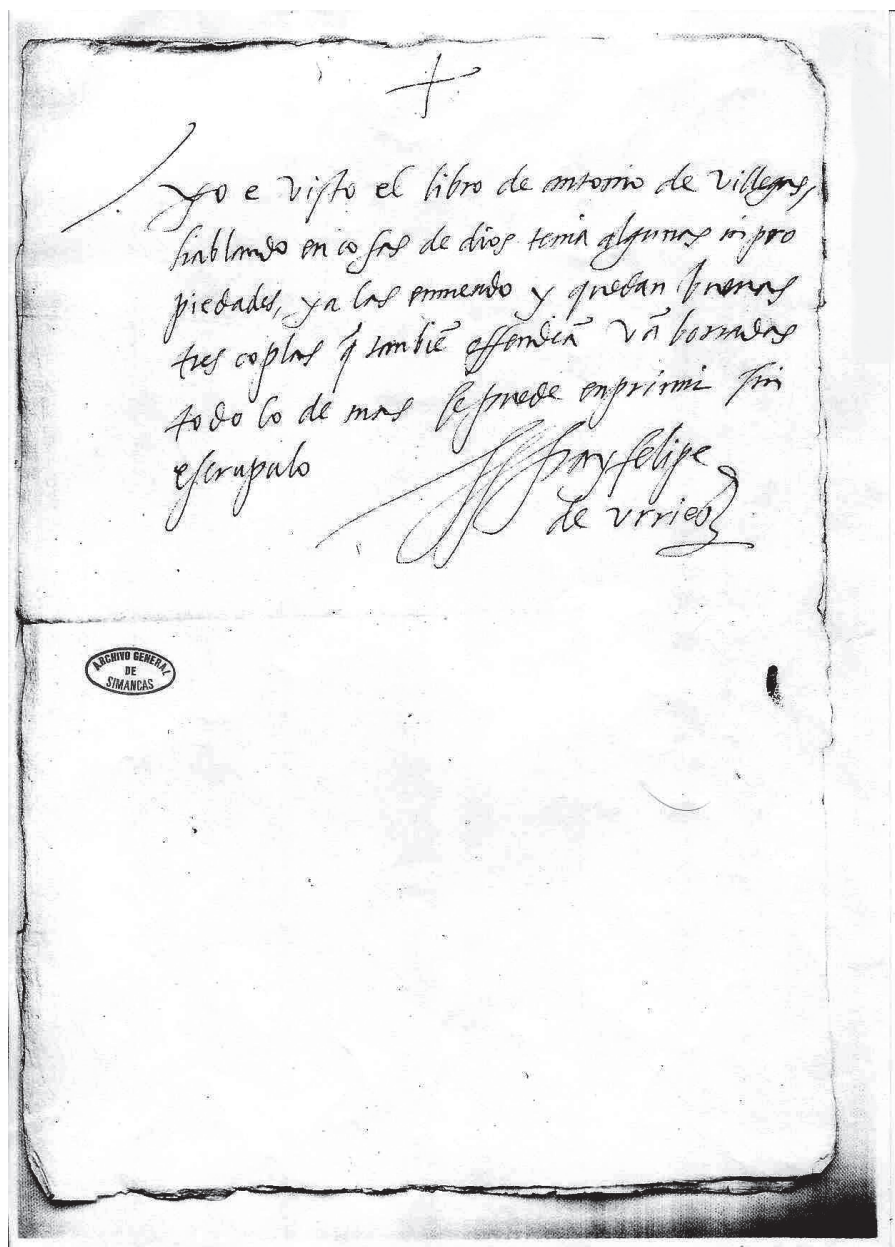 yo e visto el libro de antonio de Villegas,
hablando en cosas de dios tenia algunas inpro
piedades, ya las enmendo y quedan buenas
tres coplas q̃ tambiē offendiā vā borradas
todo lo de mas se puede enprimir sin
escrupulo
fray felipe
de urries
ARCHIVO GENERAL
DE
SIMANCAS